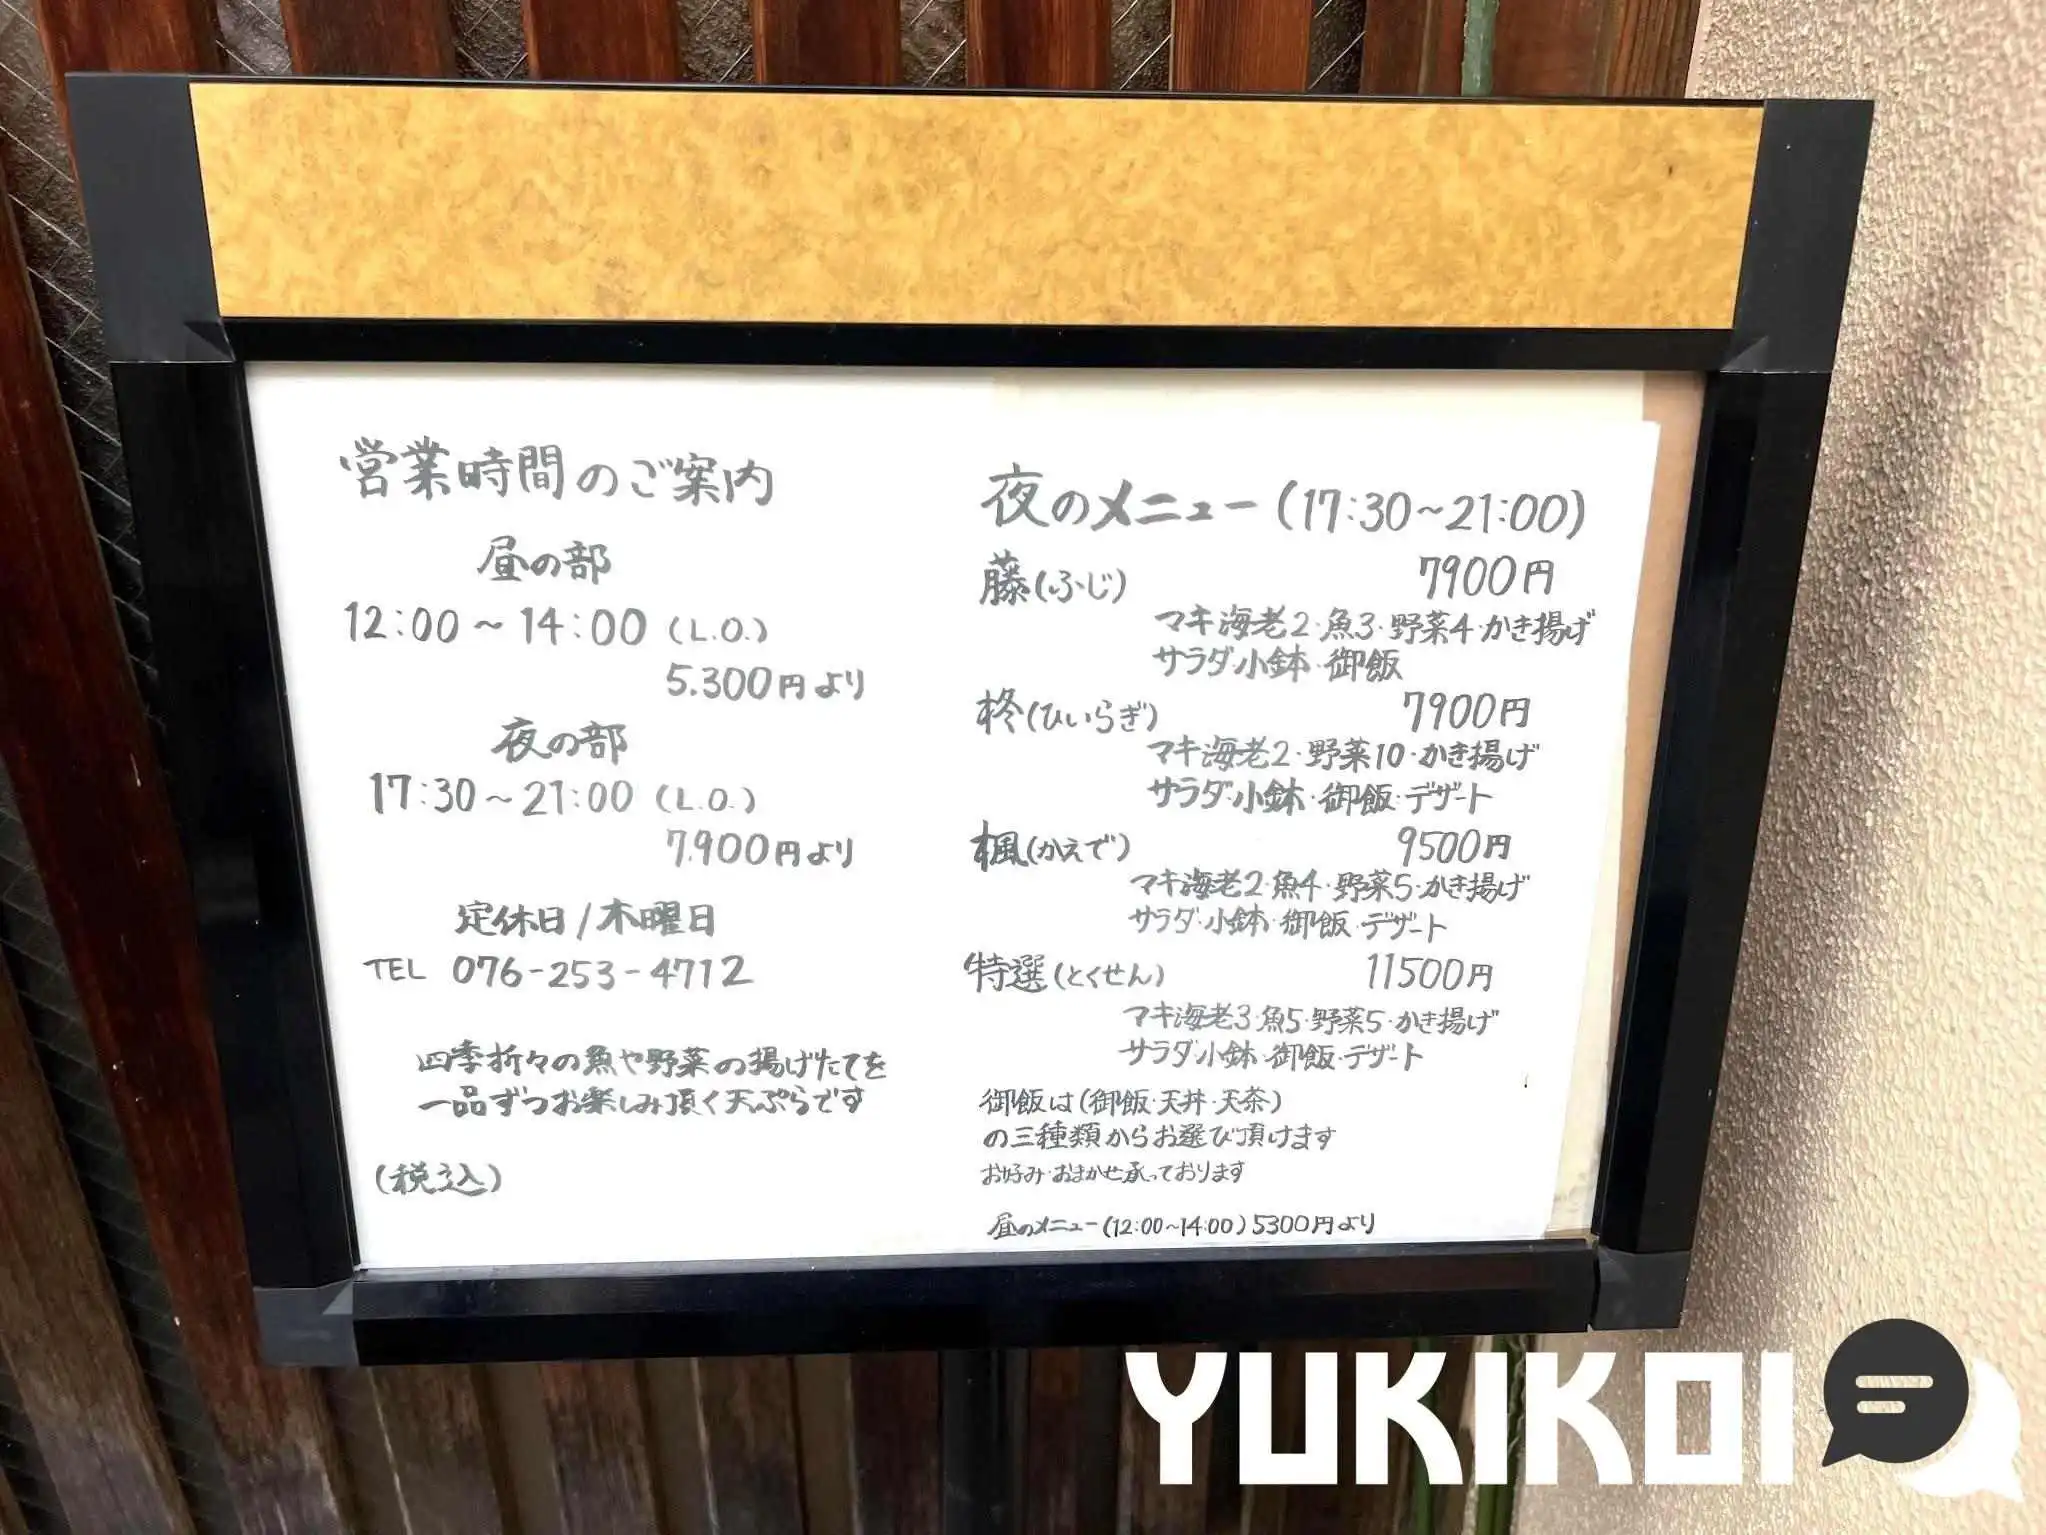 営業時間のご案内
昼の部
12:00～14:00 (L.O.)
5.300円より
夜の部
17:30～21:00 (L.O.)
7.900円より
定休日/木曜日
TEL 076-253-4712
四季折々の魚や野菜の揚げたてを
一品ずつお楽しみ頂く天ぷらです
(税込)
夜のメニュー(17:30～21:00)
藤(ふじ) 7900円
マキ海老2・魚3・野菜4・かき揚げ
サラダ・小鉢・御飯
柊(ひいらぎ) 7900円
マキ海老2・野菜10・かき揚げ
サラダ・小鉢・御飯・デザート
楓(かえで) 9500円
マキ海老2・魚4・野菜5・かき揚げ
サラダ・小鉢・御飯・デザート
特選(とくせん) 11500円
マキ海老3・魚5・野菜5・かき揚げ
サラダ・小鉢・御飯・デザート
御飯は(御飯・天丼・天茶)
の三種類からお選び頂けます
お好み・おまかせ承っております
昼のメニュー(12:00～14:00)5300円より
YUKIKOI